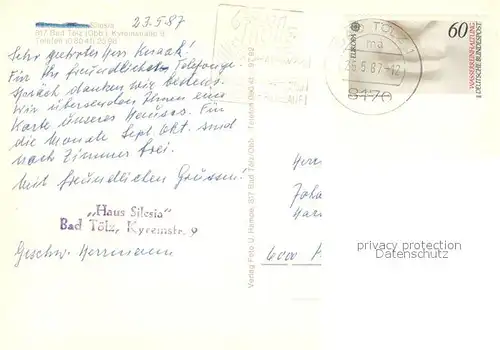 23.5.87
Silesia
817 Bad Tölz (Obb.), Kyremstraße 9
Telefon (08041) 25 98
Sehr geehrter Herr Knaak!
Für Ihr freundliches Telefonge-
spräch danken wir bestens.
Wir übersenden Ihnen eine
Karte unseres Hauses. Für
die Monate Sept. Okt. sind
noch Zimmer frei.
Mit freundlichen Grüssen!
„Haus Silesia"
Bad Tölz, Kyremstr. 9
Geschw. Herrmann
Verlag Foto U. Hamm, 817 Bad Tölz/Obb. Telefon 08041
TÖLZ 1
ma
26.5.87-12
8170
EUROPA
60
WASSERREINHALTUNG
DEUTSCHE BUNDESPOST
Herr
Joha
Har
6000
privacy protection
Datenschutz